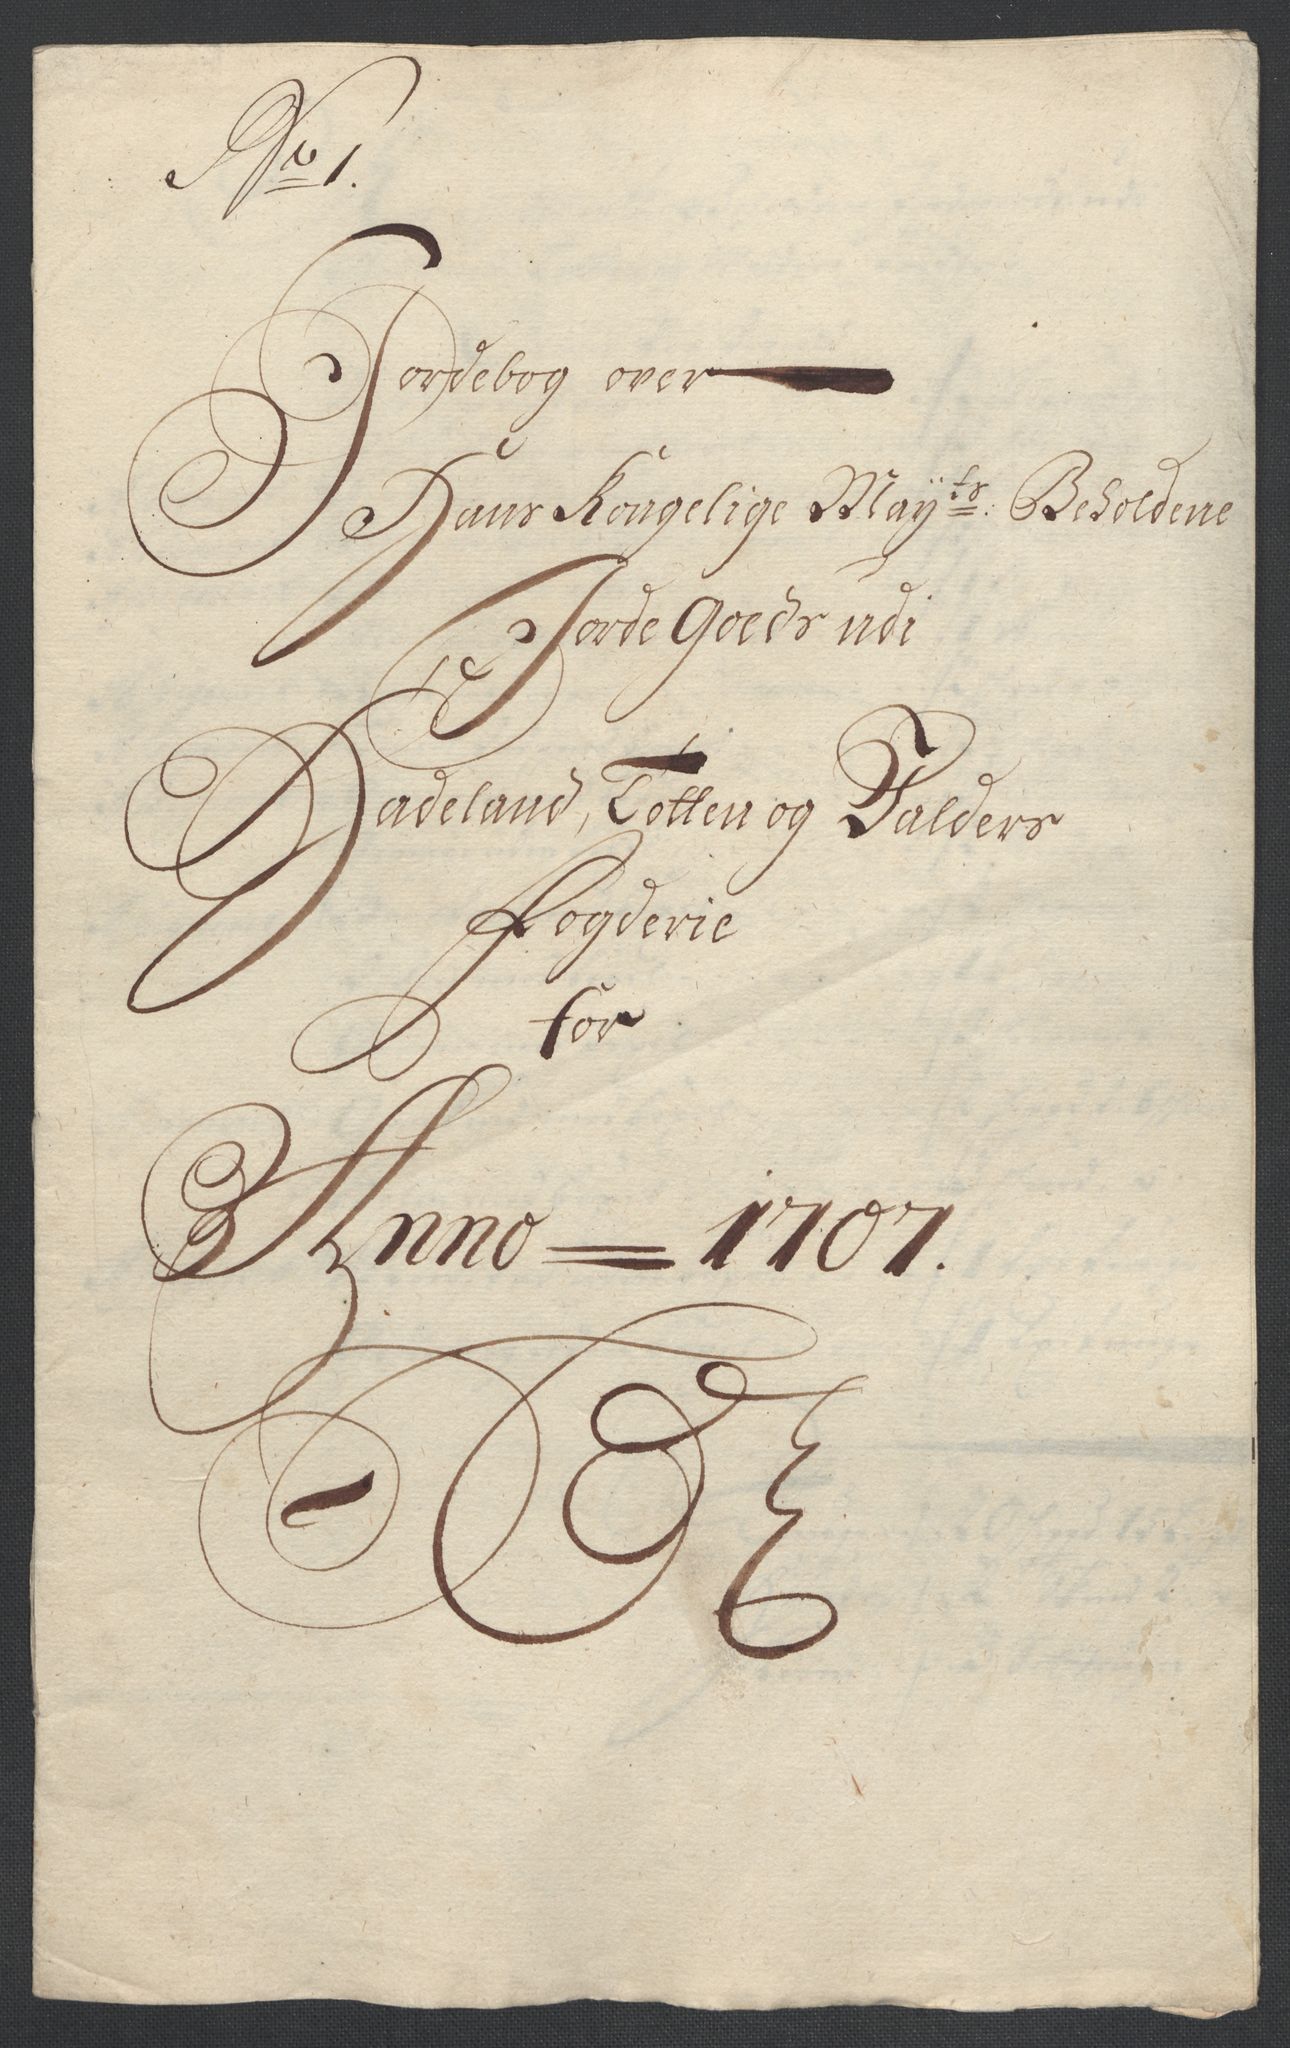 No 1.
Jordebog over
Hans Kongelige Maÿts. Beholdene
Jorde Goeds udi
Hadeland, Totten og Valders
fogderie
for
Anno = 1707.